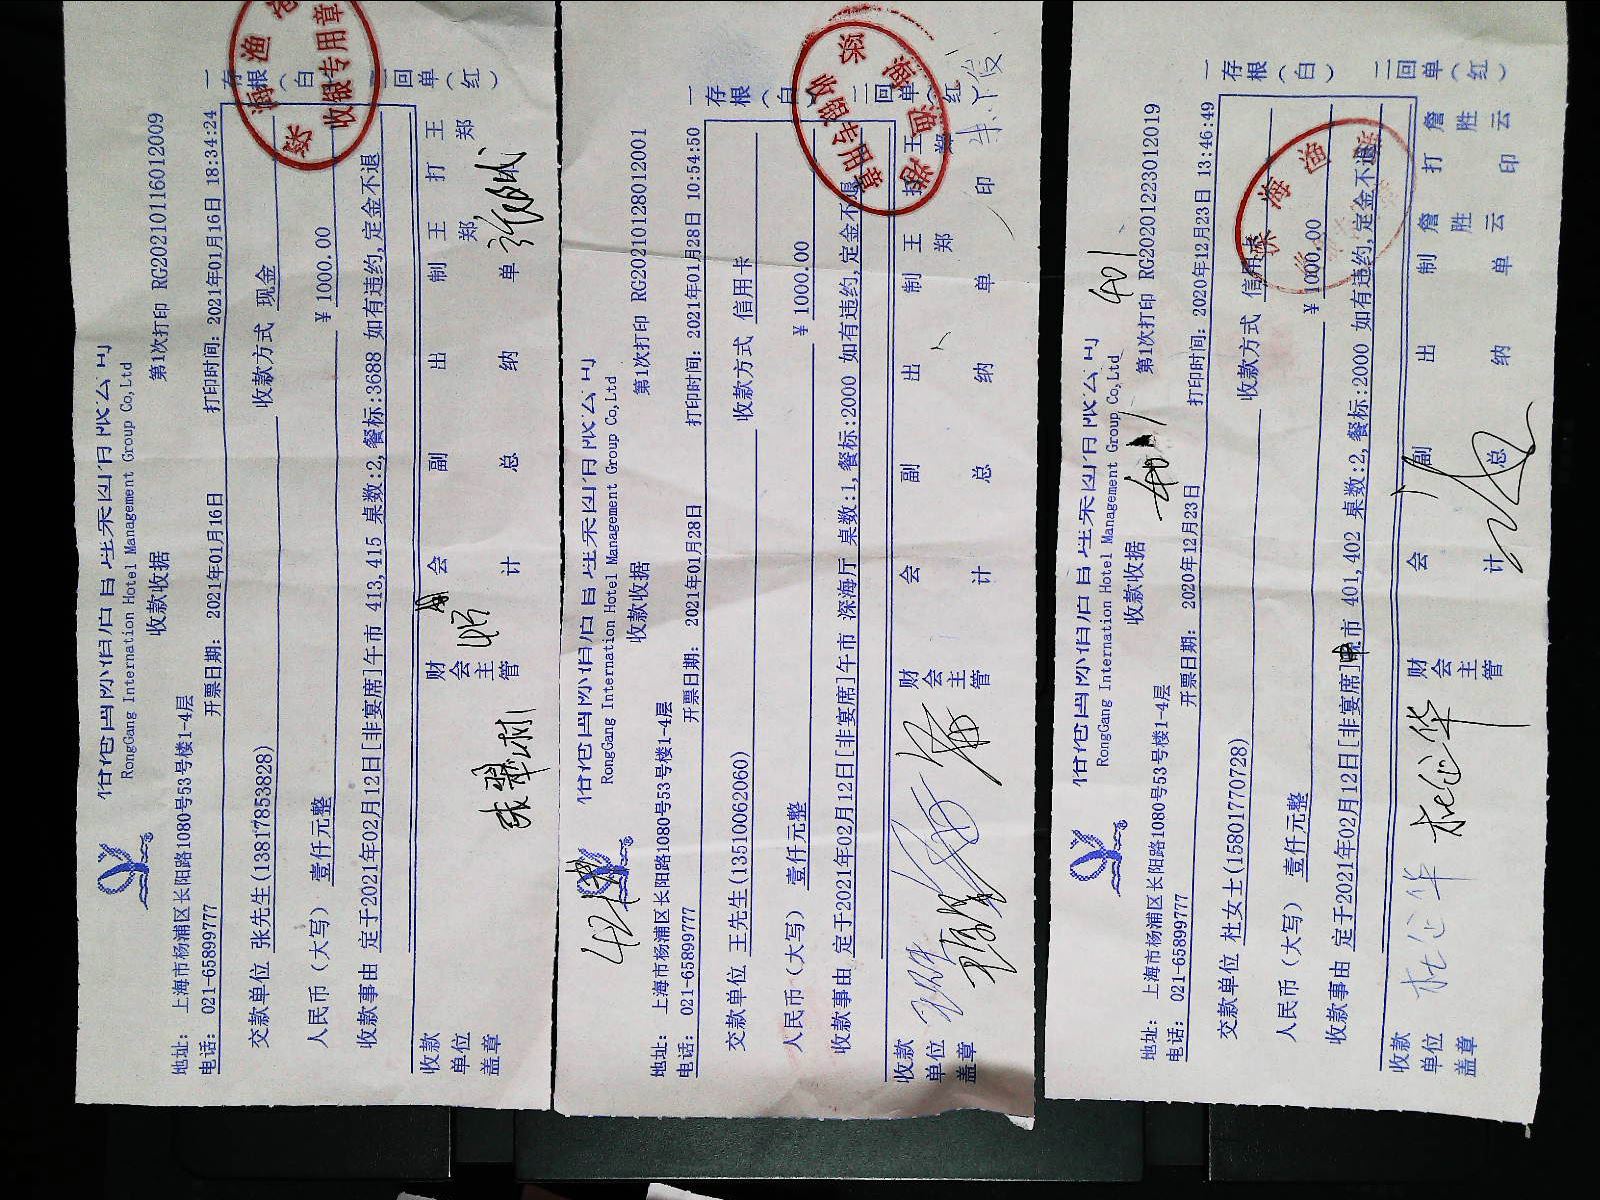 RongGang Internation Hotel Management Group Co,Ltd
收款收据
第1次打印 RG20210116012009
地址： 上海市杨浦区长阳路1080号53号楼1-4层
电话： 021-65899777
开票日期： 2021年01月16日
打印时间： 2021年01月16日 18:34:24
交款单位 张先生(13817853828)
收款方式 现金
人民币（大写） 壹仟元整
¥ 1000.00
收款事由 定于2021年02月12日[非宴席]午市 413,415 桌数:2,餐标:3688 如有违约,定金不退
收款单位盖章
财会主管
会计
副总
出纳
制单 王郑
打 王郑
一存根（白） 二回单（红）
收银专用章
张翠林
RongGang Internation Hotel Management Group Co,Ltd
收款收据
第1次打印 RG20210128012001
地址： 上海市杨浦区长阳路1080号53号楼1-4层
电话： 021-65899777
开票日期： 2021年01月28日
打印时间： 2021年01月28日 10:54:50
交款单位 王先生(13510062060)
收款方式 信用卡
人民币（大写） 壹仟元整
¥ 1000.00
收款事由 定于2021年02月12日[非宴席]午市 深海厅 桌数:1,餐标:2000 如有违约,定金不退
收款单位盖章
财会主管
会计
副总
出纳
制单 王郑
打印
一存根（白） 二回单（红）
深海渔港
收银专用章
RongGang Internation Hotel Management Group Co,Ltd
收款收据
401
第1次打印 RG20201223012019
地址： 上海市杨浦区长阳路1080号53号楼1-4层
电话： 021-65899777
开票日期： 2020年12月23日
打印时间： 2020年12月23日 13:46:49
交款单位 杜女士(15801770728)
收款方式 信用
人民币（大写） 壹仟元整
¥ 1000.00
收款事由 定于2021年02月12日[非宴席]市 401,402 桌数:2,餐标:2000 如有违约,定金不退
收款单位盖章
财会主管
会计
副总
出纳
制单 詹胜云
打印 詹胜云
一存根（白） 二回单（红）